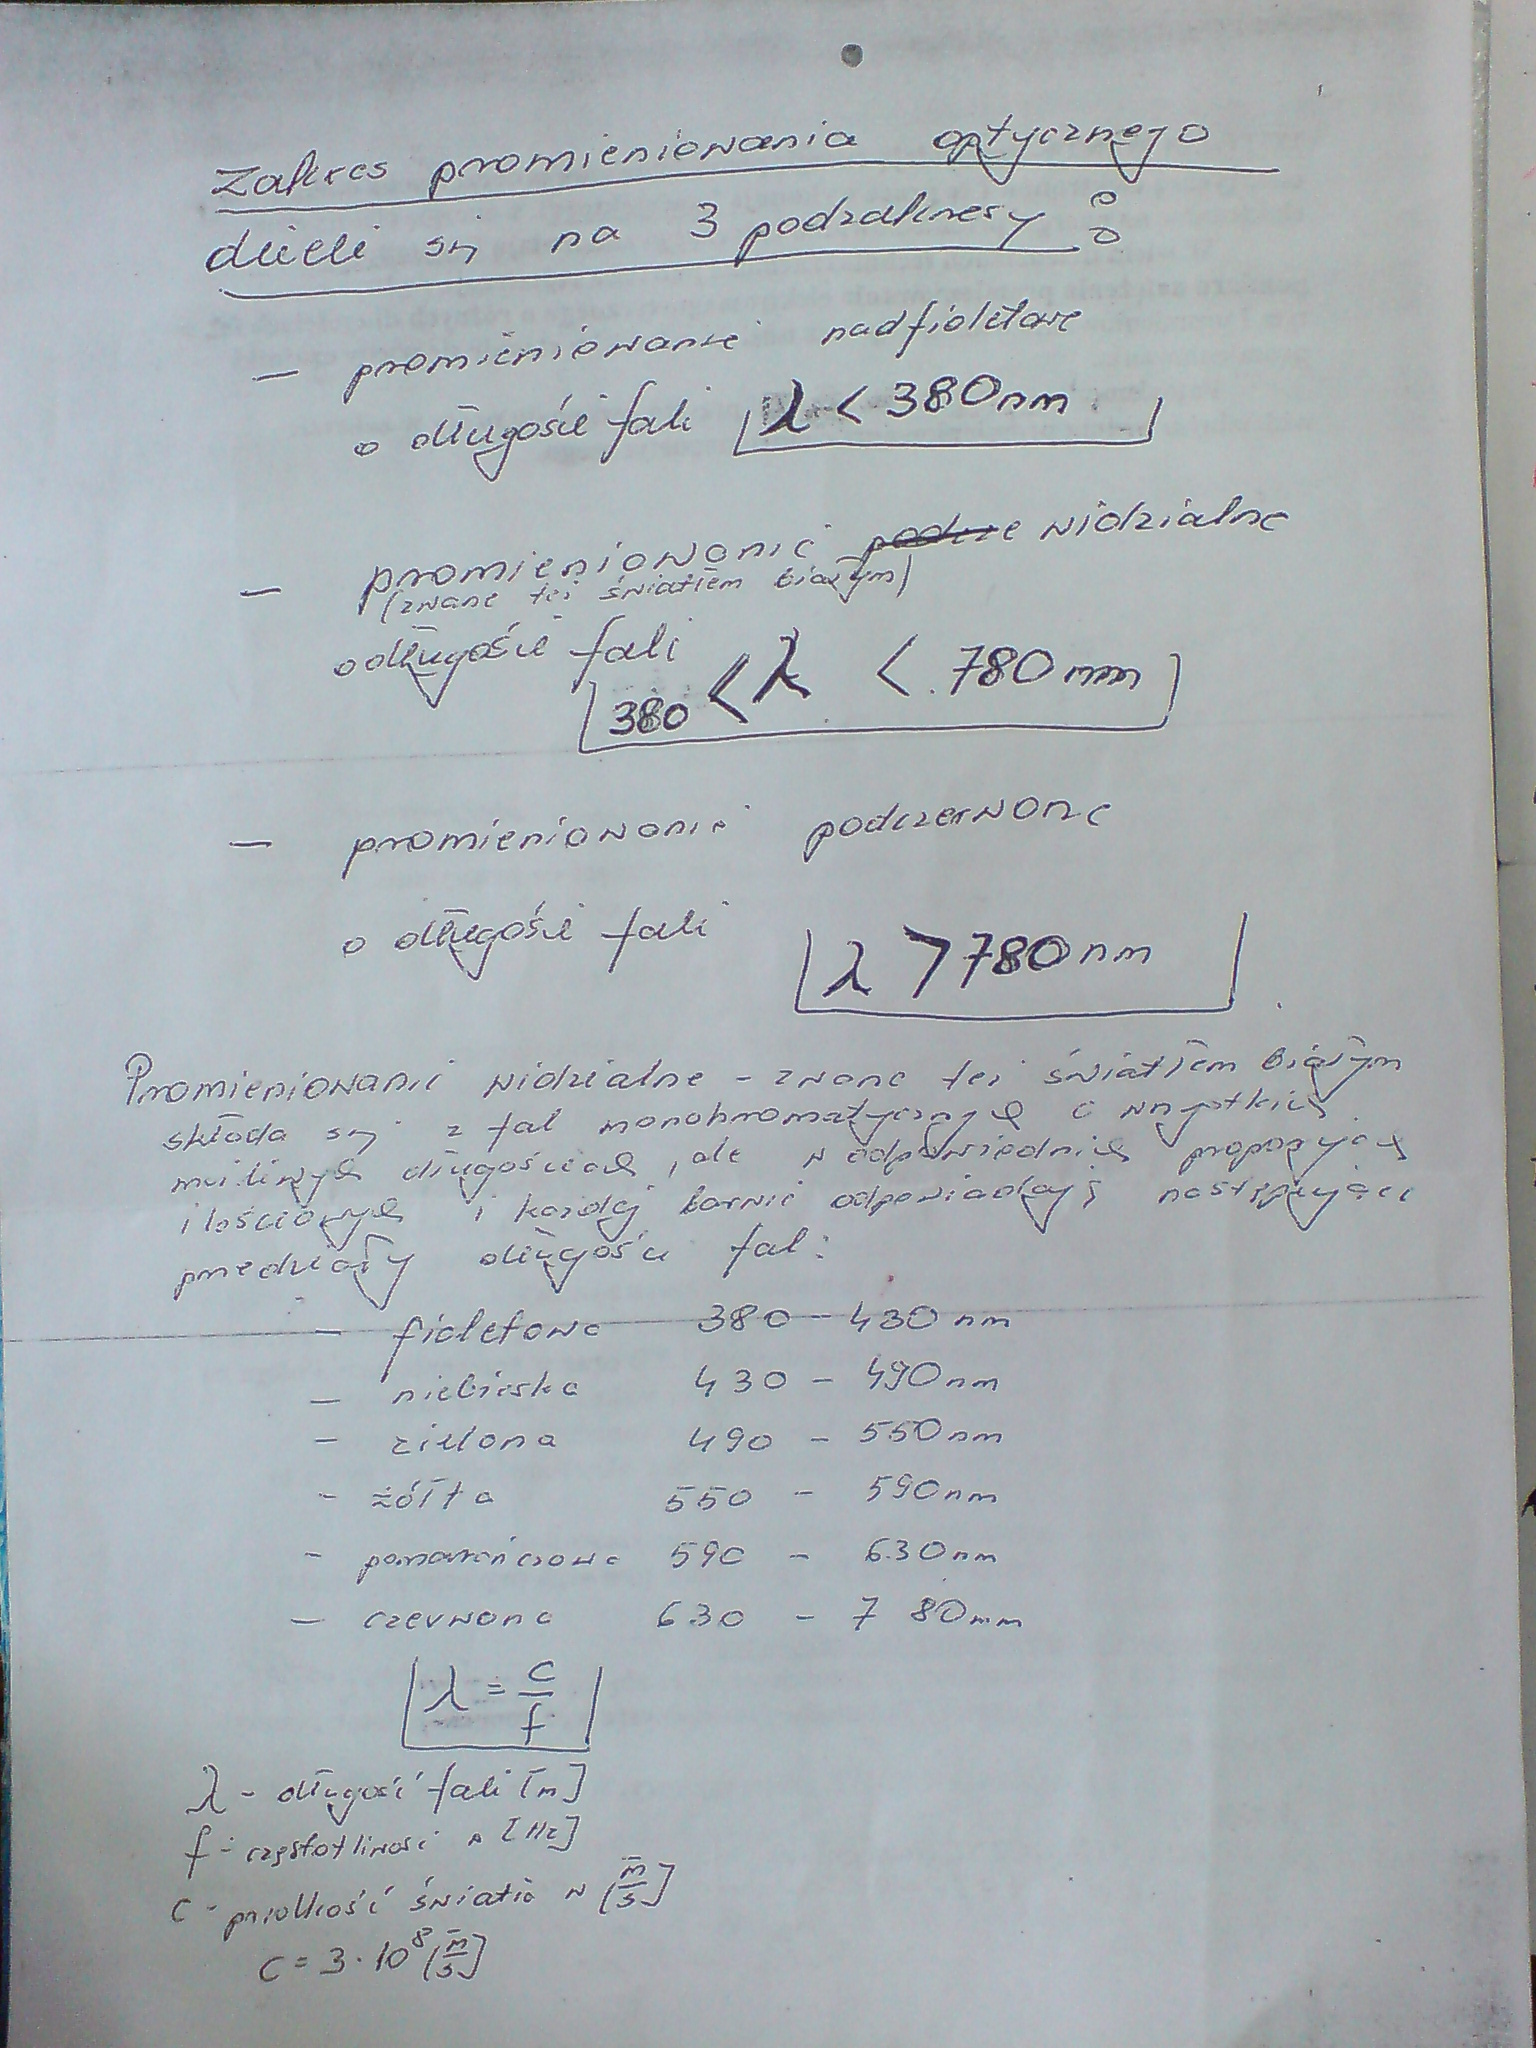 Zakres promieniowania optycznego
dzieli się na 3 podzakresy:
— promieniowanie nadfioletowe
o długości fali λ < 380nm
— promieniowanie widzialne
(znane też światłem białym)
o długości fali
380 < λ < 780nm
— promieniowanie podczerwone
o długości fali
λ > 780nm
Promieniowanie widzialne - znane też światłem białym
składa się z fal monohromatycznych o wszystkich
możliwych długościach, ale w odpowiednich proporcjach
ilościowych i każdej barwie odpowiadają następujące
przedziały długości fal:
- fioletowa 380 - 430 nm
- niebieska 430 - 490nm
- zielona 490 - 550nm
- żółta 550 - 590nm
- pomarańczowa 590 - 630nm
- czerwona 630 - 780nm
λ = c/f
λ - długość fali [m]
f - częstotliwość w [Hz]
c - prędkość światła w [m/s]
c = 3·10⁸ [m/s]